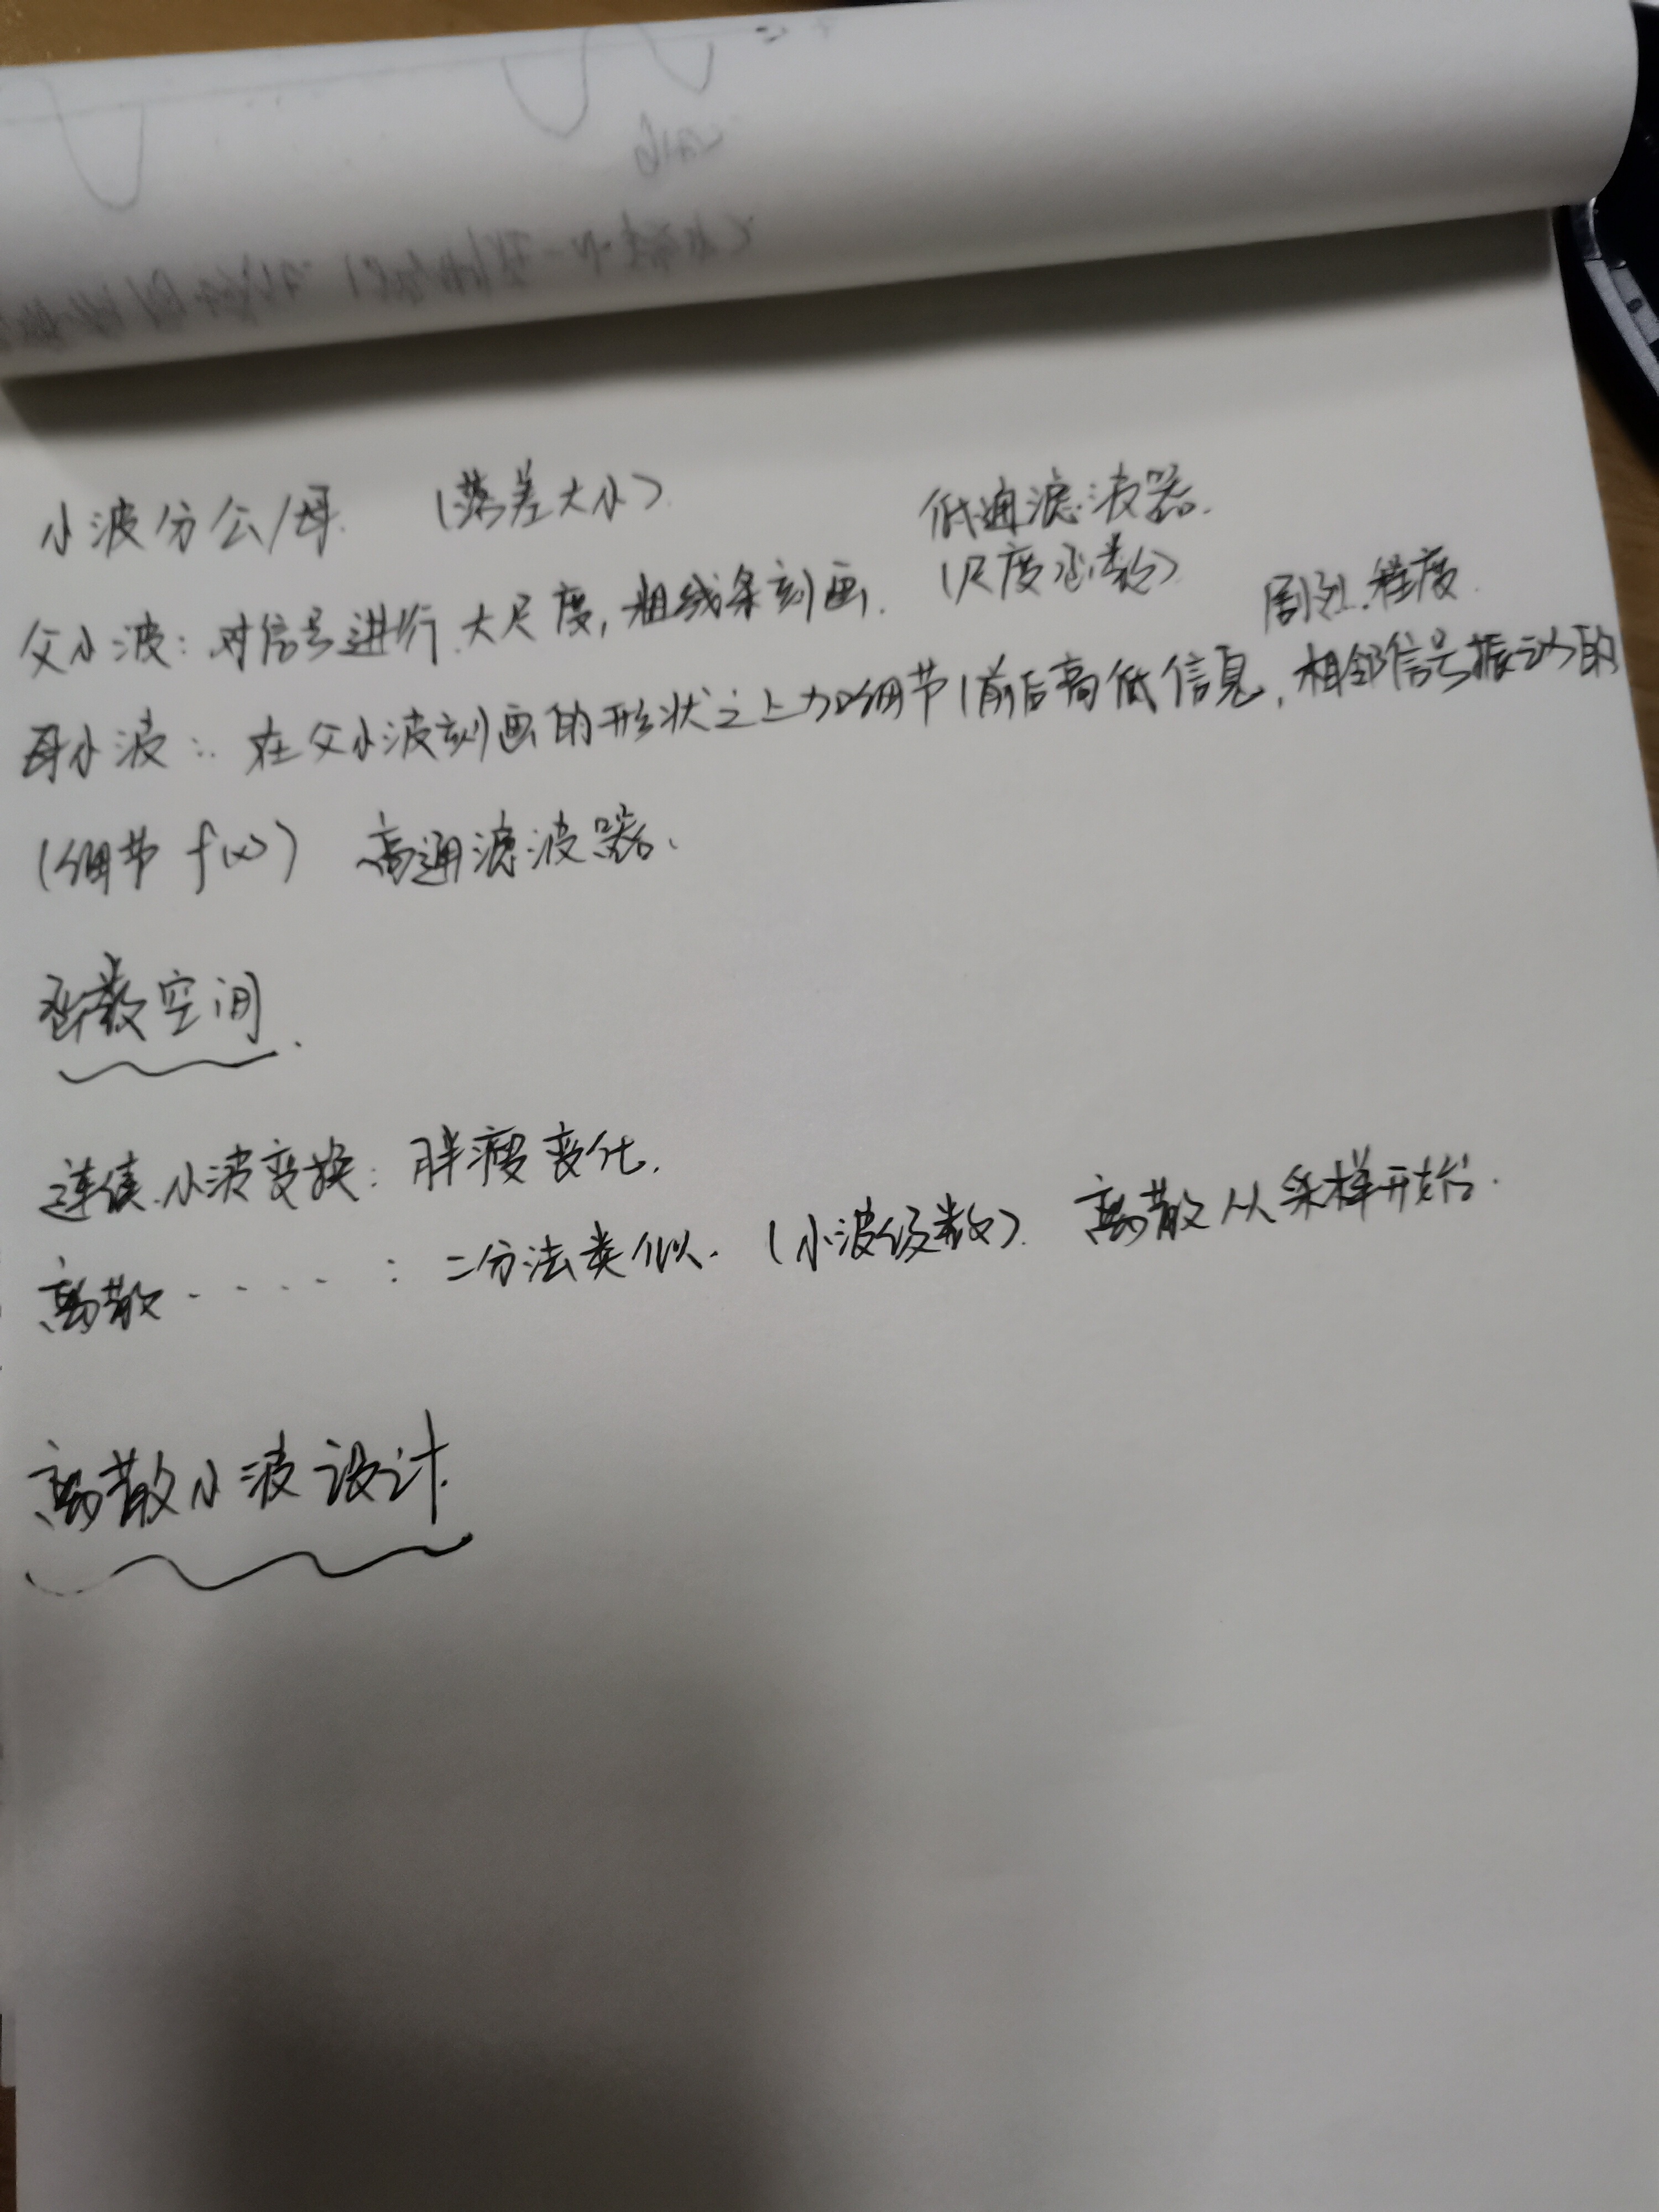 小波分公/母. (落差大小) 低通滤波器.
父小波: 对信号进行大尺度,粗线条刻画. (尺度函数) 剧烈程度.
母小波: 在父小波刻画的形状之上加细节(前后高低信息,相邻信号振动的
(细节f(x)) 高通滤波器.
函数空间.
连续小波变换: 胖瘦变化.
离散····: 二分法类似. (小波级数). 离散从采样开始.
离散小波设计.